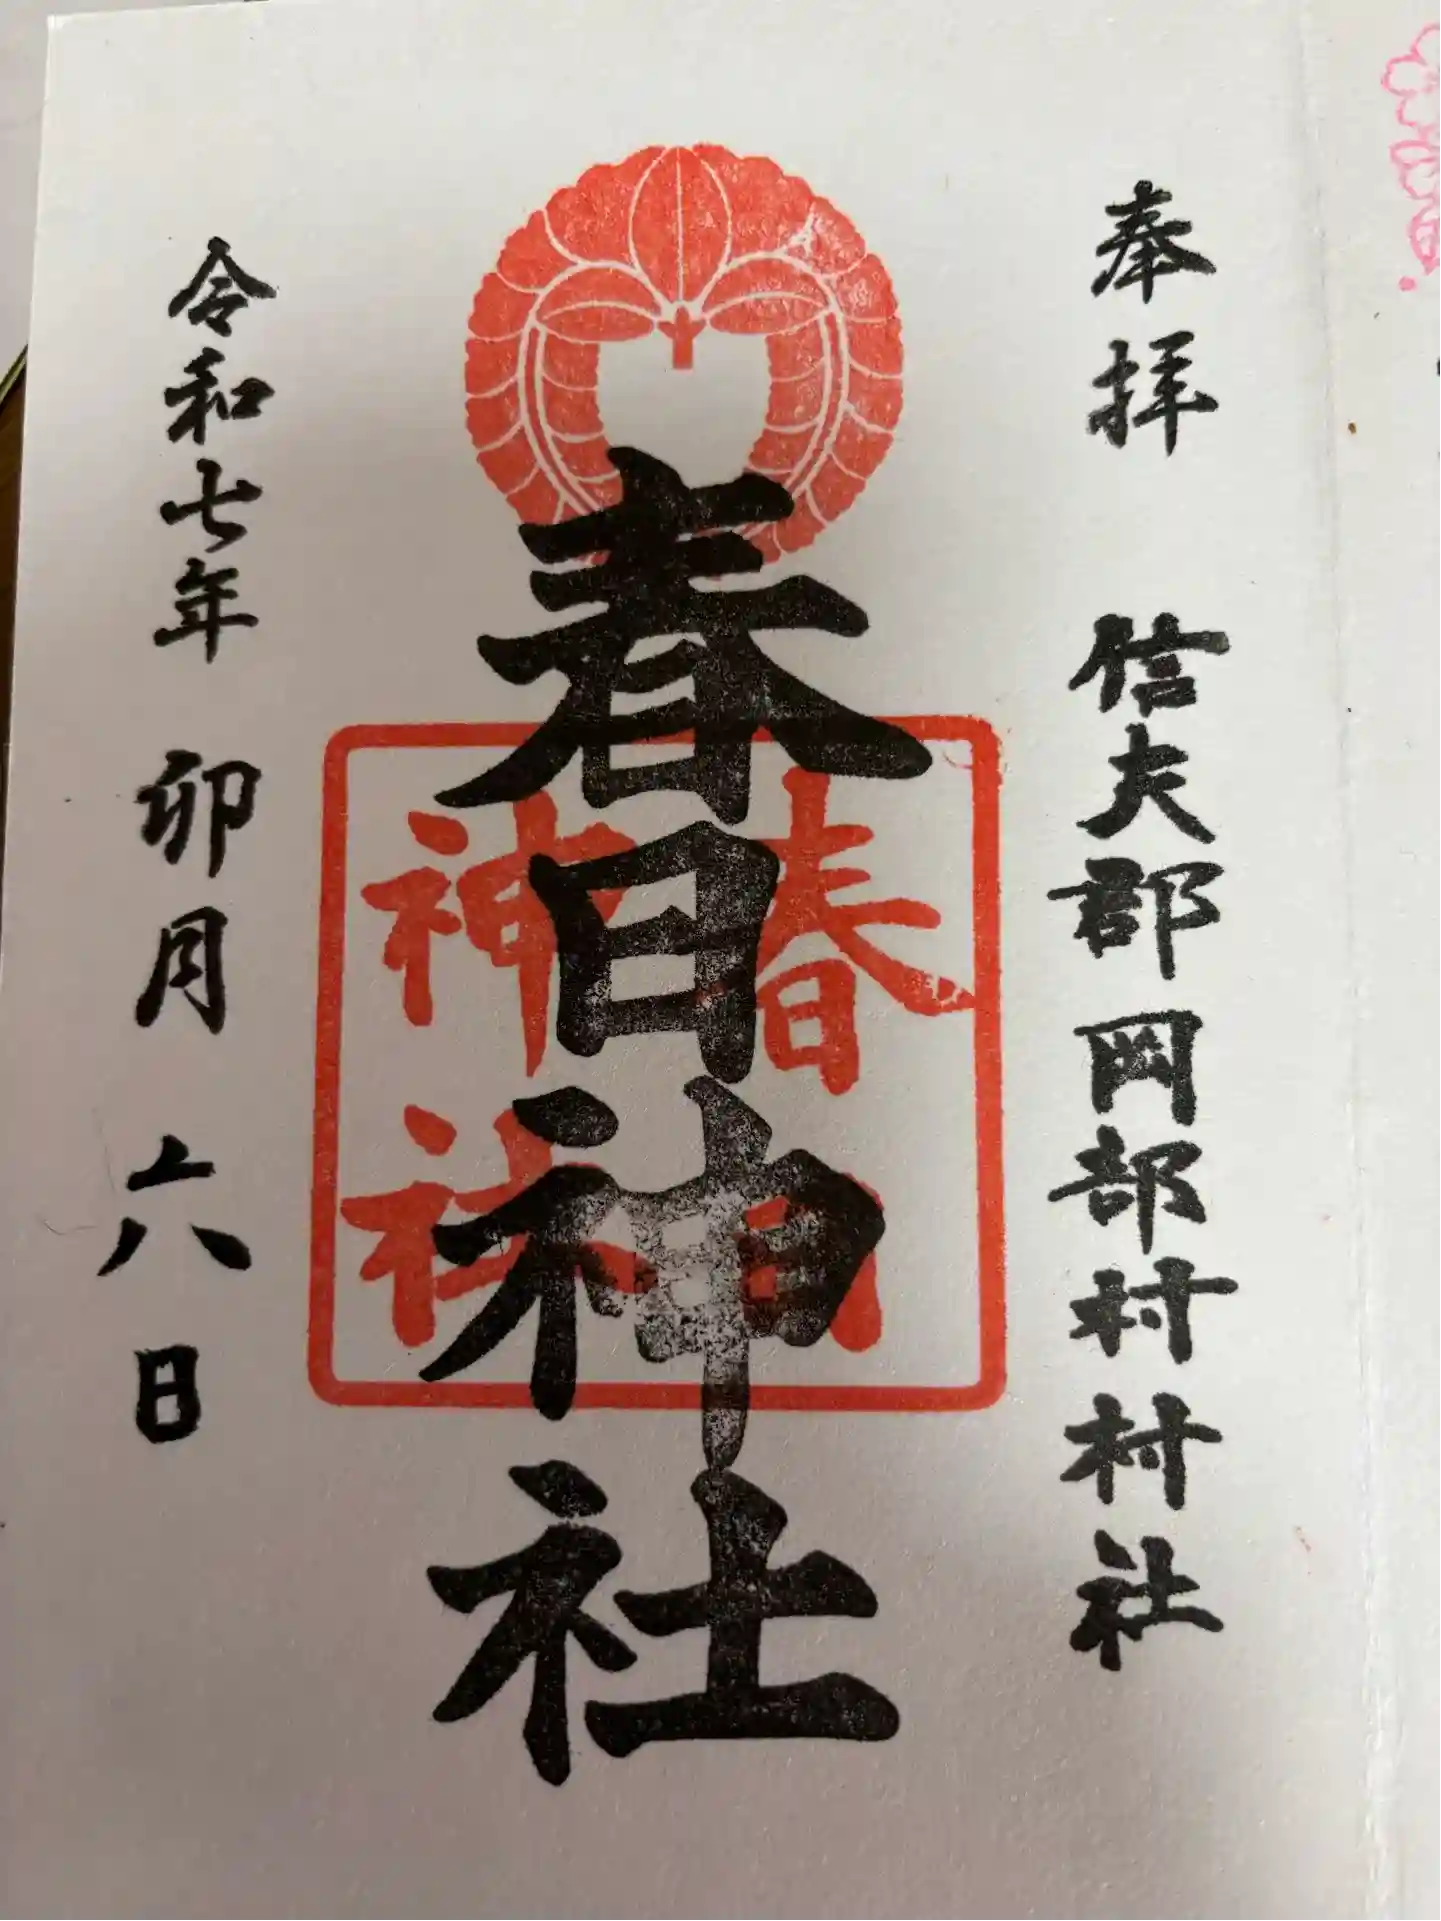 奉拝 信夫郡岡部村村社
春日神社
春日
神社
令和七年 卯月 六日